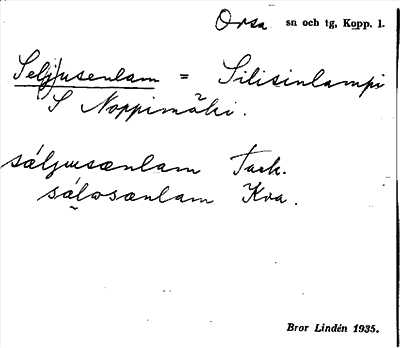 Orsa sn och tg, Kopp. l.
Seljusenlam = Silisinlampi
S Noppimäki.
säljusænlam Tack.
sålosænlam Kva.
Bror Lindén 1935.